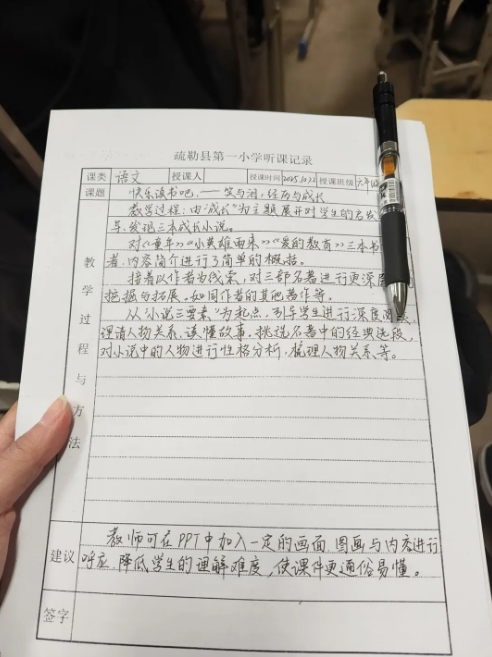 疏勒县第一小学听课记录
课类 语文 授课人 授课时间 2025.10.22 授课班级
课题 快乐读书吧——笑与泪,经历与成长
教学过程与方法
教学过程:由“成长”为主题展开对学生的启发
导,发现三本成长小说。
对《童年》《小英雄雨来》《爱的教育》三本书
者、内容简介进行了简单的概括。
接着以作者为线索,对三部名著进行更深
挖掘与拓展。如同作者的其他著作等。
从“小说三要素”为起点,引导学生进行深度阅读,
理清人物关系,读懂故事,挑选名著中的经典选段,
对小说中的人物进行性格分析,梳理人物关系等。
建议
教师可在PPT中加入一定的画面,图画与内容进行
呼应,降低学生的理解难度,使课件更通俗易懂。
签字